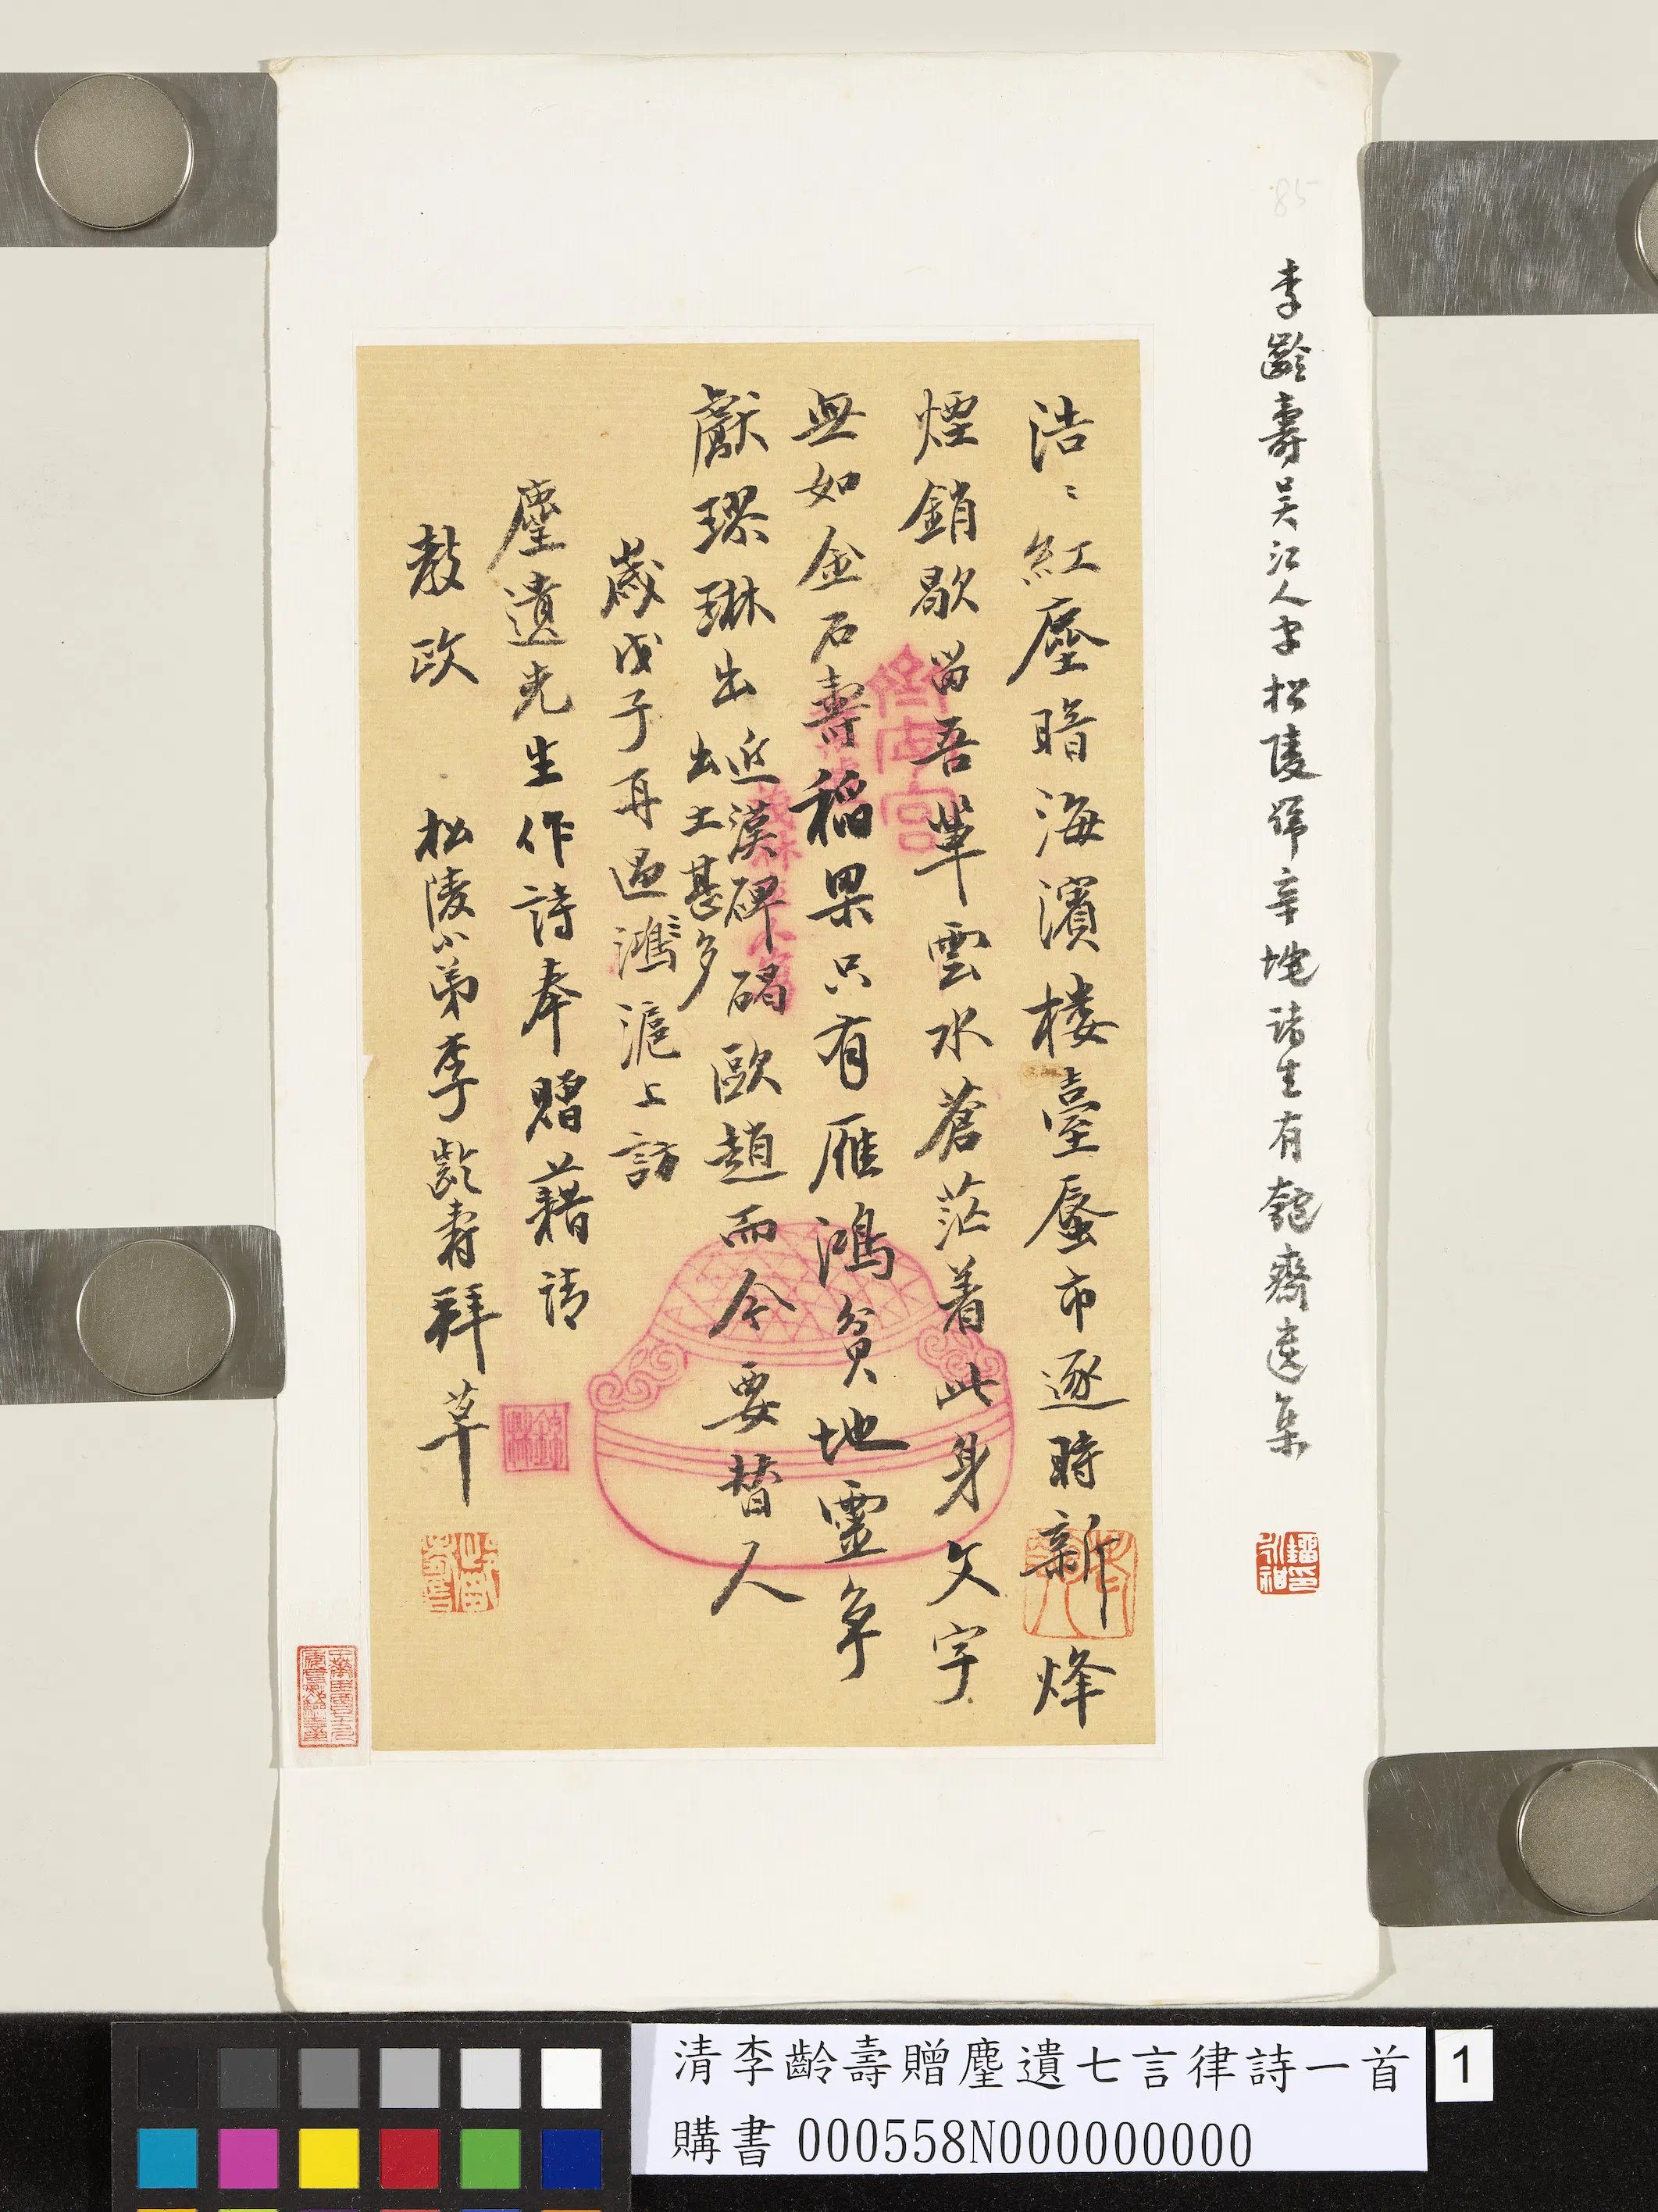 85
李齡壽吳江人字松陵號辛垞諸生有匏齋遺集
浩〻紅塵暗海濱樓臺蜃市逐時新烽
煙銷歇留吾輩雲水蒼茫着此身文字
無如金石壽稻粱只有雁鴻貧地靈爭
獻璆琳出
近漢碑碣
出土甚多
歐趙而今要替人
歲戊子再過鴻滬上訪
塵遺先生作詩奉贈藉請
教政
松陵小弟李齡壽拜草
清李齡壽贈塵遺七言律詩一首
購書 000558N000000000
1